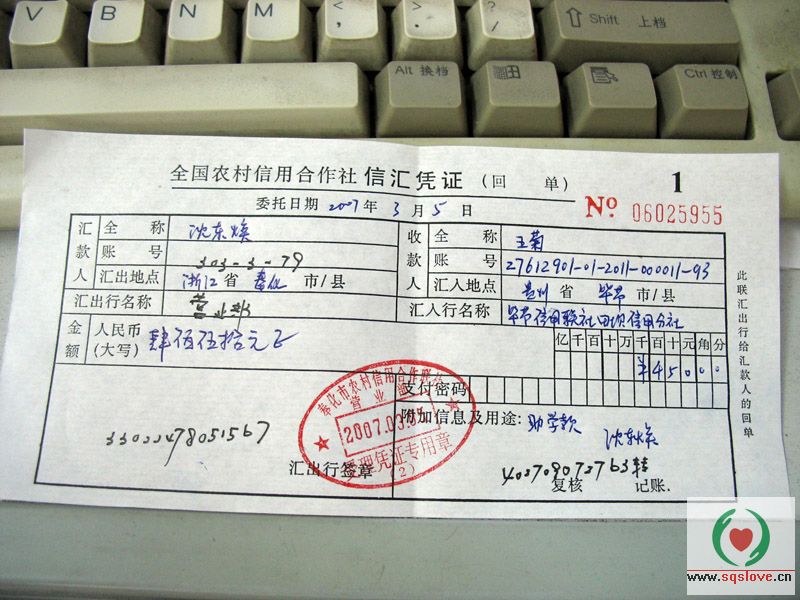 V B N M < , > . ? / Shift 上档
Alt 换档 Ctrl 控制
全国农村信用合作社 信汇凭证 (回 单) 1
委托日期 2007年 3月 5日 No 06025955
汇款人 全称 沈东焕 收款人 全称 王菊
账号 303-3-79 账号 27612901-01-2011-000011-93
汇出地点 浙江 省 奉化 市/县 汇入地点 贵州 省 毕节 市/县
汇出行名称 营业部 汇入行名称 毕节信用联社田坝信用合社
金额 人民币(大写) 肆佰伍拾元正 亿千百十万千百十元角分
¥45000
支付密码
奉化市农村信用合作联社
营业部
2007.03.05
受理凭证专用章
(2)
附加信息及用途: 助学款
沈东焕
汇出行签章 复核 记账.
此联汇出行给汇款人的回单
www.sqslove.cn